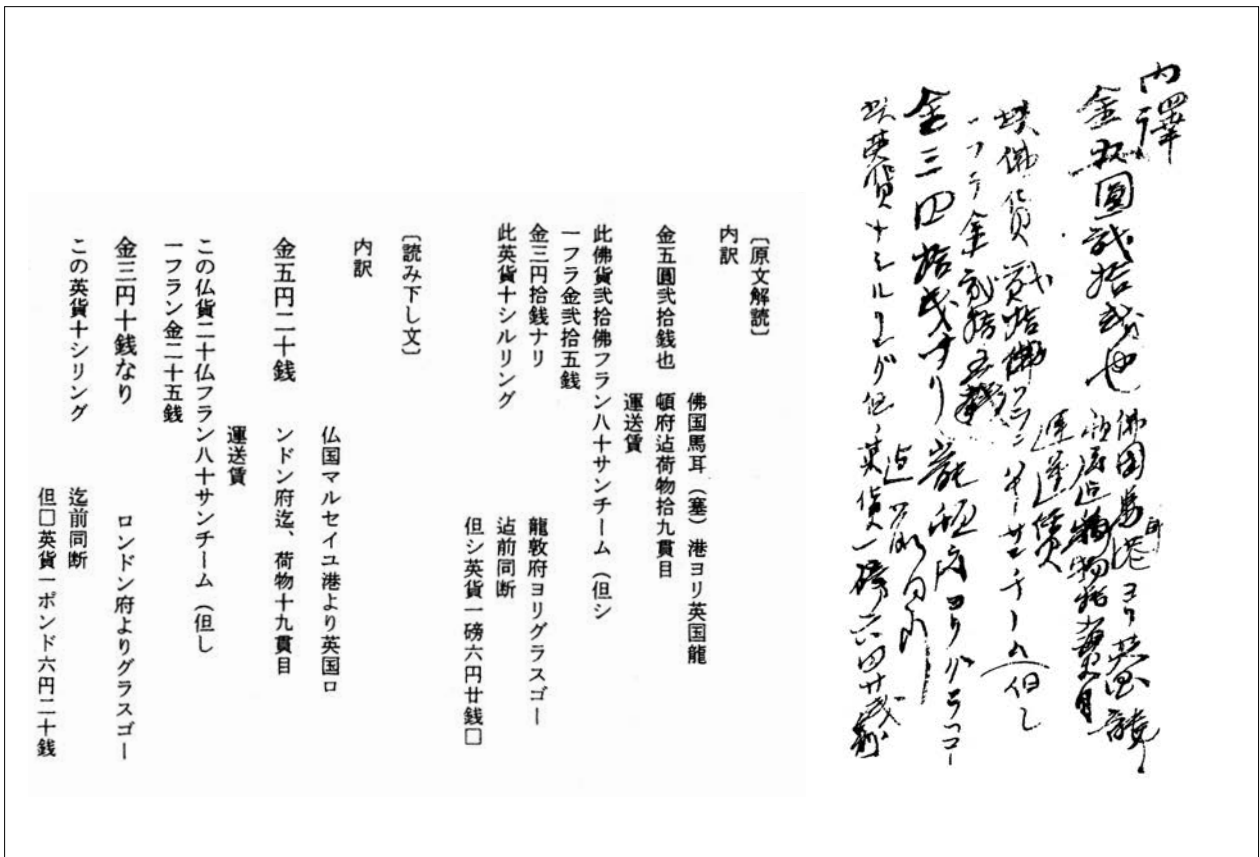 内譯
金五圓弐拾銭也
佛国馬耳港ヨリ英国龍
頓府迠荷物拾九貫目
運送賃
此佛貨弐拾佛フラン八十サンチーム(但シ
一フラ金弐拾五銭
金三円拾銭ナリ
龍敦府ヨリグラスゴー
迠前同断
此英貨十シルリング
但シ英貨一磅六円廿銭
〔原文解読〕
内訳
佛国馬耳(塞)港ヨリ英国龍
金五圓弐拾銭也 頓府迠荷物拾九貫目
運送賃
此佛貨弐拾佛フラン八十サンチーム(但シ
一フラ金弐拾五銭
金三円拾銭ナリ 龍敦府ヨリグラスゴー
此英貨十シルリング 迠前同断
但シ英貨一磅六円廿銭□
〔読み下し文〕
内訳
仏国マルセイユ港より英国ロ
金五円二十銭 ンドン府迄、荷物十九貫目
運送賃
この仏貨二十仏フラン八十サンチーム(但し
一フラン金二十五銭
金三円十銭なり ロンドン府よりグラスゴー
この英貨十シリング 迄前同断
但□英貨一ポンド六円二十銭